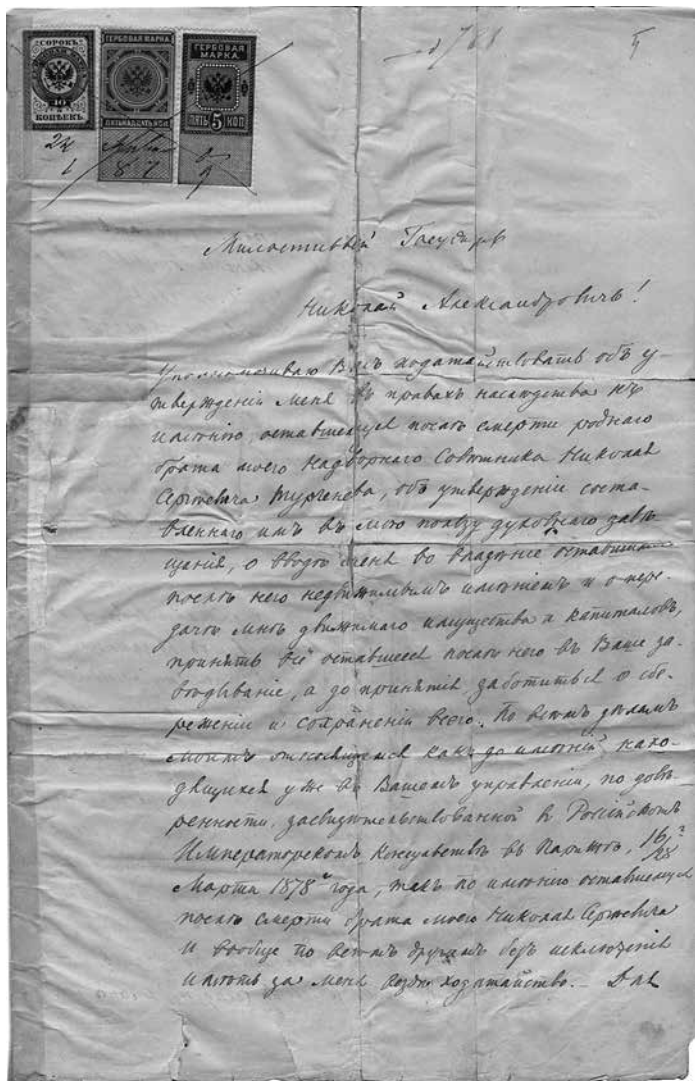 СОРОКЪ
10
КОПѢЕКЪ
ГЕРБОВАЯ МАРКА
ПЯТНАДЦАТЬ КОП
ГЕРБОВАЯ МАРКА
ПЯТЬ 5 КОП
Милостивый Государь
Николай Александровичъ!
Уполномочиваю Васъ ходатайствовать объ у-
твержденіи меня въ правахъ наслѣдства къ
имѣнію, оставшемуся послѣ смерти роднаго
брата моего Надворнаго Совѣтника Николая
Сергѣевича Тургенева, объ утвержденіи соста-
вленнаго имъ въ мою пользу духовнаго завѣ-
щанія, о вводѣ меня во владѣніе оставшимся
послѣ него недвижимымъ имѣніемъ и о пере-
дачѣ мнѣ движимаго имущества и капиталовъ,
принять всё оставшееся послѣ него въ Ваше за-
вѣдываніе, а до принятія заботиться о сбе-
реженіи и сохраненіи всего. По всѣмъ дѣламъ
моимъ относящимся какъ до имѣній нахо-
дящихся уже въ Вашемъ управленіи, по довѣ-
ренности, засвидѣтельствованной въ Россійскомъ
Императорскомъ Консульствѣ въ Парижѣ, 16/28
Марта 1878 года, такъ по имѣнію оставшемуся
послѣ смерти брата моего Николая Сергѣевича
и вообще по всѣмъ другимъ безъ исключенія
имѣть за меня ходатайство. — Для